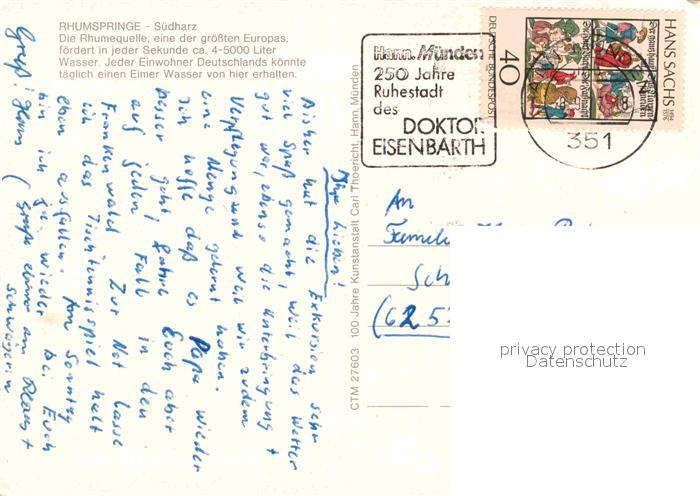 RHUMSPRINGE - Südharz
Die Rhumequelle, eine der größten Europas,
fördert in jeder Sekunde ca. 4-5000 Liter
Wasser. Jeder Einwohner Deutschlands könnte
täglich einen Eimer Wasser von hier erhalten.
Ihr Lieben!
Bisher hat die Exkursion sehr
viel Spaß gemacht, weil das Wetter
gut war, ebenso die Unterbringung +
Verpflegung und weil wir zudem
eine Menge gelernt haben.
Ich hoffe daß es Papa wieder
besser geht, fahre Euch aber
auf jeden Fall in den
Frankenwald. Zur Not lasse
ich das Tischtennisspiel halt
eben ausfallen. Am Sonntag
bin ich ja wieder bei Euch
Gruß!
Schwägerin
CTM 27603 100 Jahre Kunstanstalt Carl Thoericht, Hann. Münden
Hann. Münden
250 Jahre
Ruhestadt
des
DOKTOR
EISENBARTH
351
DEUTSCHE BUNDESPOST
40
HANS SACHS 1494 1576
An
Familie
(6253
privacy protection
Datenschutz